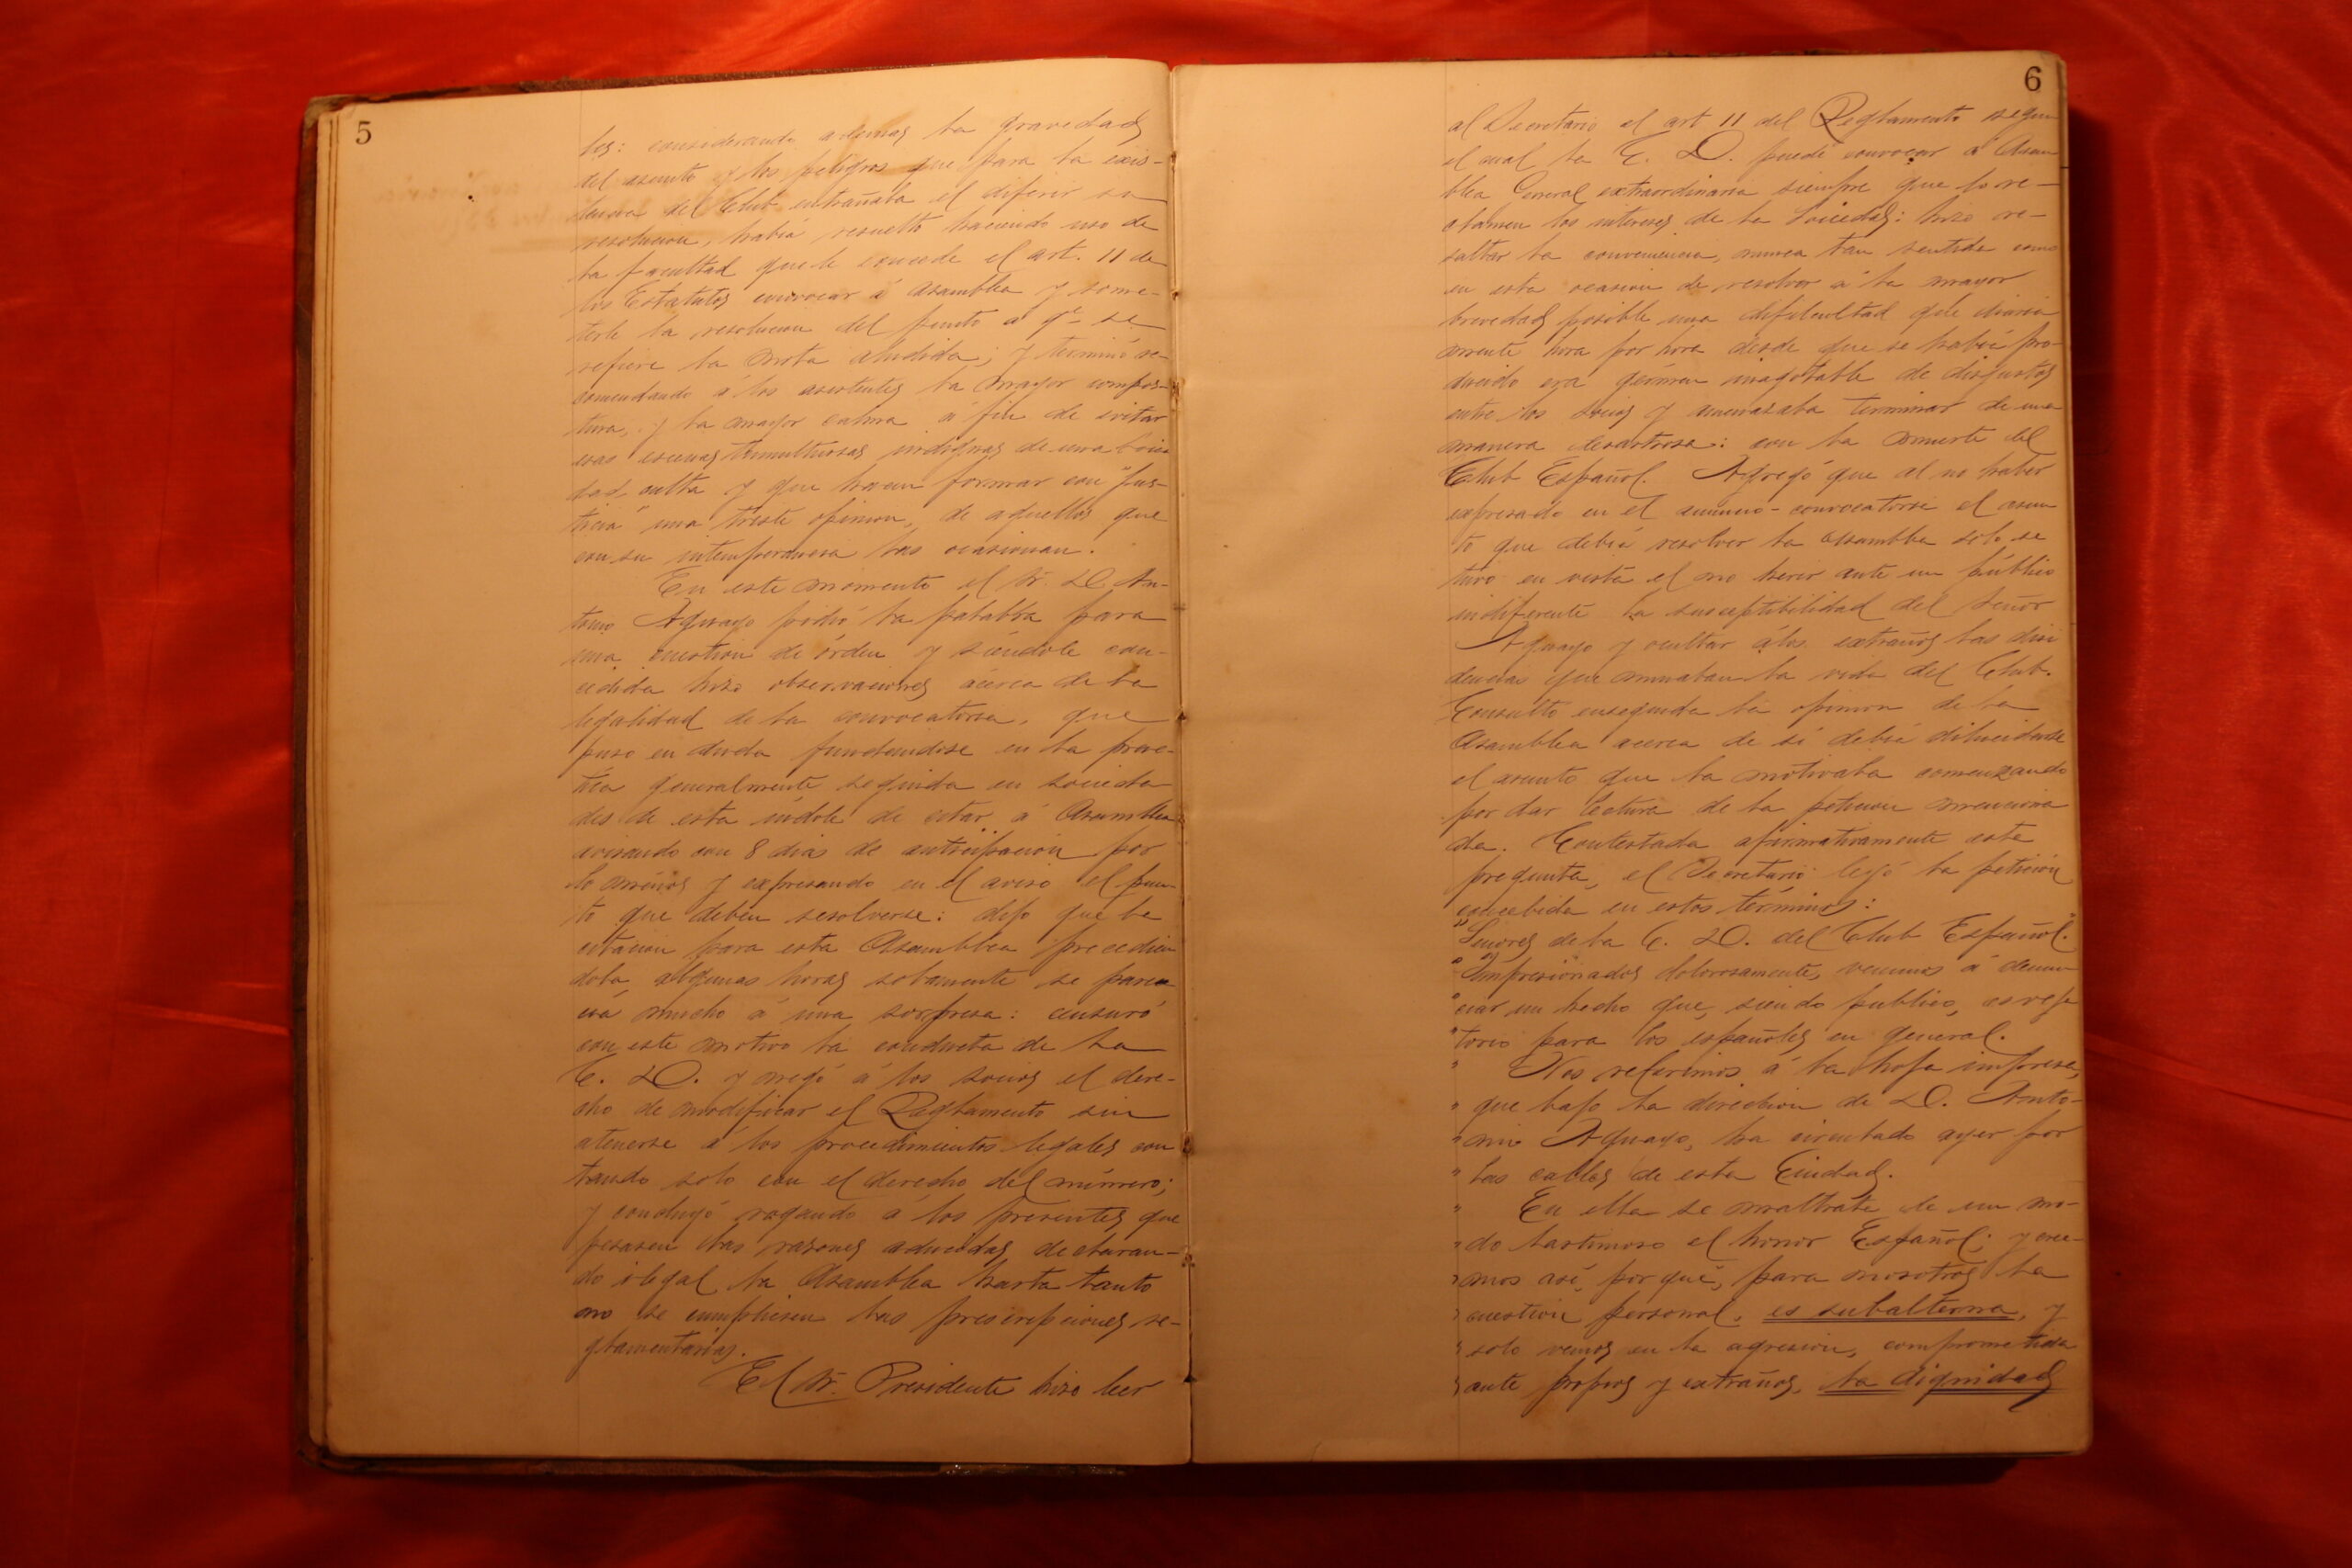 5
los: considerando ademas la gravedad
del asunto y los peligros que para la exis-
tencia del Club entrañaba el diferir su
resolucion, había resuelto haciendo uso de
la facultad que le concede el art. 11 de
los Estatutos convocar á Asamblea y some-
terle la resolucion del punto á qe. se
refiere la nota aludida; y terminó re-
comendando á los asistentes la mayor compos-
tura, y la mayor calma á fin de evitar
esas escenas tumultuosas indignas de una Socie
dad culta y que hacen formar con "jus-
ticia" una triste opinion, de aquellos que
con su intemperancia las ocasionan.
En este momento el Sr. D. An-
tonio Aguayo pidió la palabra para
una cuestion de órden y siéndole con-
cedida hizo observaciones acerca de la
legalidad de la convocatoria, que
puso en duda fundandose en la prac-
tica generalmente seguida en socieda
des de esta índole de citar á Asamblea
avisando con 8 dias de anticipacion por
lo menos y expresando en el aviso el pun-
to que deben resolverse: dijo que la
citacion para esta Asamblea precedien
dola algunas horas solamente se parec
ia mucho á una sorpresa: censuró
con este motivo la conducta de la
C. D. y negó á los socios el dere-
cho de modificar el Reglamento sin
atenerse á los procedimientos legales con
tando solo con el derecho del número;
y concluyó rogando á los presentes que
pesasen las razones aducidas declaran-
do ilegal la Asamblea hasta tanto
no se cumpliesen las prescripciones re-
glamentarias.
El Sr. Presidente hizo leer
6
al Secretario el art 11 del Reglamento segun
el cual la C. D. puede convocar á Asam
blea General extraordinaria siempre que lo re-
clamen los intereses de la Sociedad: hizo re-
saltar la conveniencia, nunca tan sentida como
en esta ocasion de resolver á la mayor
brevedad posible una dificultad que diaria
mente hora por hora desde que se habia pro-
ducido era gérmen inagotable de disgustos
entre los socios y amenazaba terminar de una
manera desastrosa: con la muerte del
Club Español. Agregó que al no haber
expresado en el anuncio-convocatoria el asun
to que debia resolver la asamblea solo se
tuvo en vista el no herir ante un público
indiferente la susceptibilidad del Señor
Aguayo y ocultar á los extraños las disi
dencias que minaban la vida del Club.
Consultó enseguida la opinion de la
Asamblea acerca de si debia dilucidarse
el asunto que la motivaba comenzando
por dar lectura de la peticion menciona
da. Contestada afirmativamente esta
pregunta, el Secretario leyó la peticion
concebida en estos términos:
"Señores de la C. D. del Club Español."
"Impresionados dolorosamente, venimos á denun
"ciar un hecho que, siendo publico, es veja
"torio para los españoles en general.
" Nos referimos á la hoja impresa,
" que bajo la direccion de D. Anto-
" nio Aguayo, ha circulado ayer por
" las calles de esta Ciudad.
" En ella se maltrata de un mo-
" do lastimoso el honor Español; y cree-
" mos asi, por qué, para nosotros la
" cuestion personal, es subalterna, y
" solo vemos en la agresion, comprometida
" ante propios y extraños, la dignidad